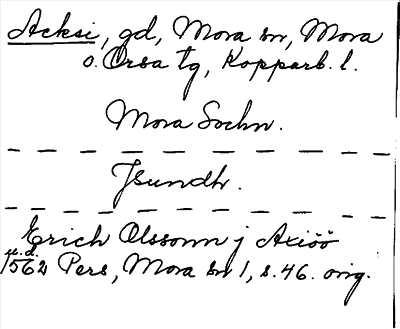 Acksi, gd, Mora sn, Mora
o. Orsa tg, Kopparb. l.
Mora Sochn.
Jsundh.
Erich Olssonn j Axiöö
u.d.
1562 Pers, Mora sn 1, s. 46. orig.